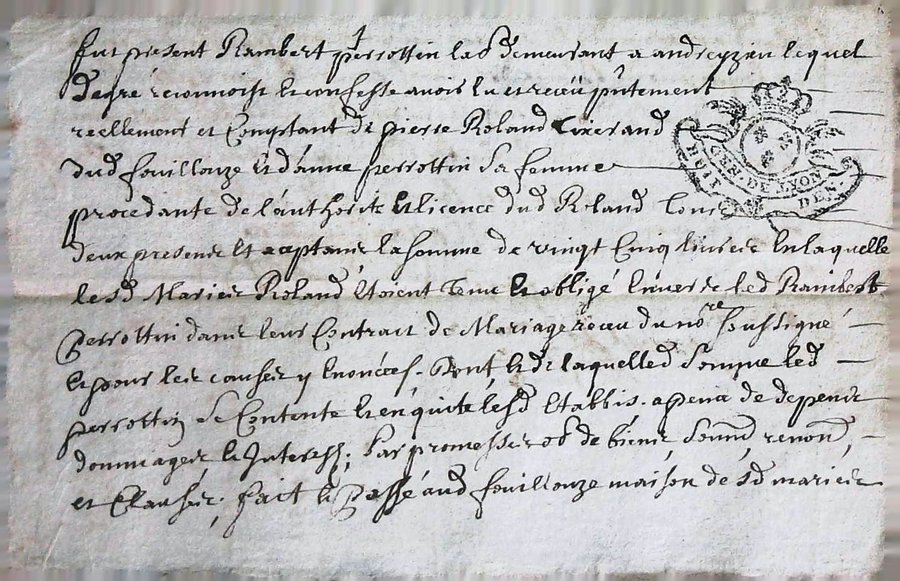 fut present Rambert perrottin lab demeurant a andrezieu lequel
de gré reconnoist et confesse avois eu et receu p̄ntement
reellement et Comptant de pierre Roland tixerand
dud fouillouze et d'anne perrottin sa femme
procedante de l'authorité et licence dud Roland tous
deux presens et aceptans la somme de vingt Cinq livres en laquelle
les d Maries Roland etoient Tenu et obligé envers led Rambert
perrottin dans leur Contract de Mariage receu du no.re soussigné
et pour les causes y enoncées. Dont et de laquelle d somme led
perrottin se Contente et en quite lesd etablis. a peine de depens
dommages et Interests; par promesses ob de biens, soumd, renond,
et Clauses; fait et Passé aud fouillouze maison desd maries
HUIT
GEN. DE LYON
DEN.